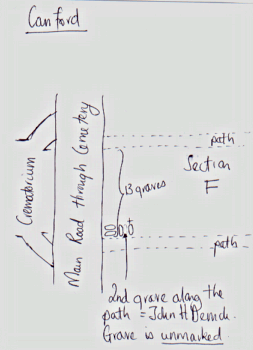 Canford
path
Section
F
13 graves
path
Crematorium
Main Road through Cemetery
2nd grave along the
path = John H
Grave is unmarked.